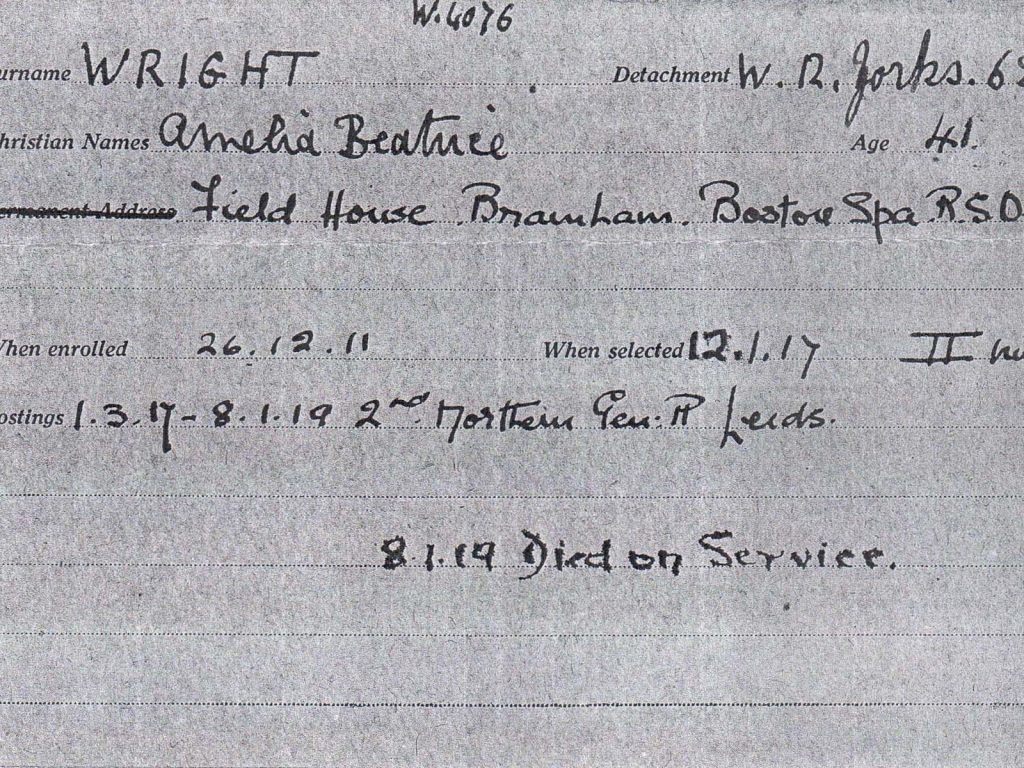 W.4076
urname WRIGHT Detachment W. R. Yorks. 6
hristian Names Amelia Beatrice Age 41.
ermanent Address Field House Bramham. Boston Spa R.S.O
When enrolled 26.12.11 When selected 12.1.17 II
ostings 1.3.17-8.1.19 2nd Northern Gen. H Leeds.
8.1.19 Died on Service.